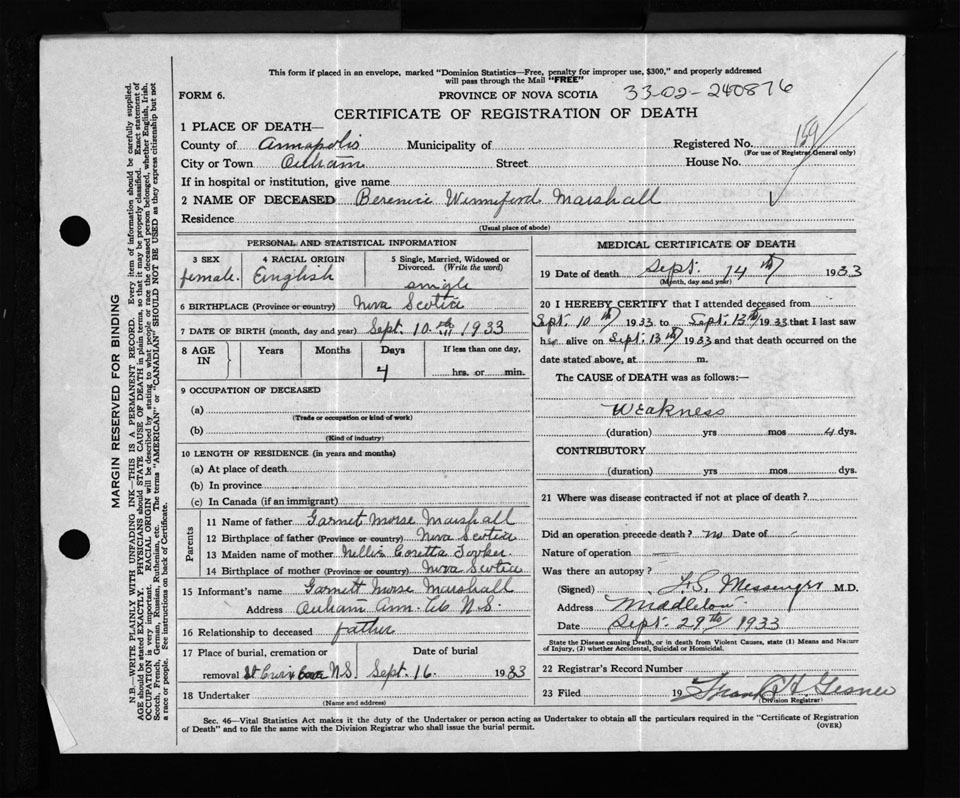 This form if placed in an envelope, marked "Dominion Statistics—Free, penalty for improper use, $300," and properly addressed
will pass through the Mail "FREE"
FORM 6.
PROVINCE OF NOVA SCOTIA 33-02-240876
CERTIFICATE OF REGISTRATION OF DEATH
1 PLACE OF DEATH— 159
County of Annapolis Municipality of Registered No.
(For use of Registrar General only)
City or Town Street House No.
If in hospital or institution, give name
2 NAME OF DECEASED Berenice Winniford Marshall
Residence
(Usual place of abode)
PERSONAL AND STATISTICAL INFORMATION
3 SEX 4 RACIAL ORIGIN 5 Single, Married, Widowed or
Divorced. (Write the word)
female. English single
6 BIRTHPLACE (Province or country) Nova Scotia
7 DATE OF BIRTH (month, day and year) Sept. 10 th 1933
8 AGE IN Years Months Days If less than one day,
4 hrs. or min.
9 OCCUPATION OF DECEASED
(a)
(Trade or occupation or kind of work)
(b)
(Kind of industry)
10 LENGTH OF RESIDENCE (in years and months)
(a) At place of death
(b) In province
(c) In Canada (if an immigrant)
Parents
11 Name of father Garnet Morse Marshall
12 Birthplace of father (Province or country) Nova Scotia
13 Maiden name of mother Coretta
14 Birthplace of mother (Province or country) Nova Scotia
15 Informant's name Garnett Morse Marshall
Address Ann. Co N.S.
16 Relationship to deceased father
17 Place of burial, cremation or Date of burial
removal N.S Sept. 16 1933
18 Undertaker
(Name and address)
MEDICAL CERTIFICATE OF DEATH
19 Date of death Sept. 14 th 1933
(Month, day and year)
20 I HEREBY CERTIFY that I attended deceased from
Sept 10 th 1933 to Sept. 13 th 1933 that I last saw
her alive on Sept. 13 th 1933 and that death occurred on the
date stated above, at m.
The CAUSE of DEATH was as follows:—
Weakness
(duration) yrs mos 4 dys.
CONTRIBUTORY
(duration) yrs mos dys.
21 Where was disease contracted if not at place of death?
Did an operation precede death? no Date of
Nature of operation
Was there an autopsy?
(Signed) Messenger M.D.
Address Middleton
Date Sept 29th 1933
State the Disease causing Death, or in death from Violent Causes, state (1) Means and Nature
of Injury, (2) whether Accidental, Suicidal or Homicidal.
22 Registrar's Record Number
23 Filed 19 Frank H. Gesner
(Division Registrar)
Sec. 46—Vital Statistics Act makes it the duty of the Undertaker or person acting as Undertaker to obtain all the particulars required in the "Certificate of Registration
of Death" and to file the same with the Division Registrar who shall issue the burial permit.
(OVER)
MARGIN RESERVED FOR BINDING
N.B.—WRITE PLAINLY WITH UNFADING INK—THIS IS A PERMANENT RECORD. Every item of information should be carefully supplied.
AGE should be stated EXACTLY. PHYSICIANS should STATE CAUSE OF DEATH in plain terms, so that it may be properly classified. Exact statement of
OCCUPATION is very important. RACIAL ORIGIN will be described by stating to what people or race the deceased person belonged, whether English, Irish,
Scotch, French, German, Russian, Ruthenian, etc. The terms "AMERICAN" or "CANADIAN" SHOULD NOT BE USED as they express citizenship but not
a race or people. See instructions on back of Certificate.